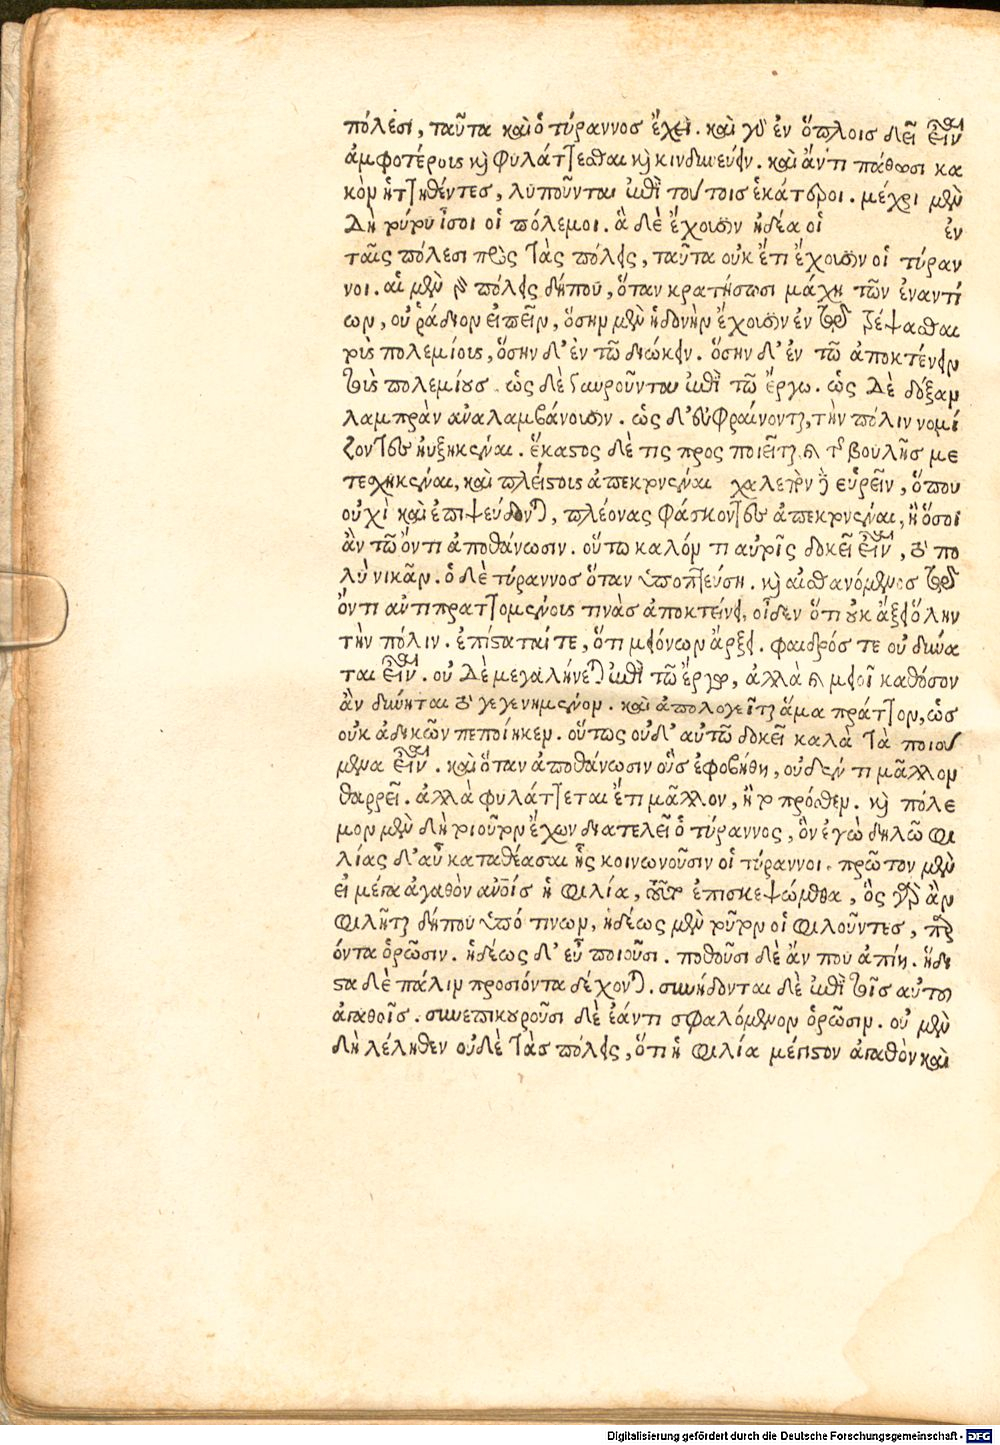 πόλεσι, ταῦτα καὶ ὁ τύραννος ἔχει. καὶ γὰρ ἐν ὅπλοις δεῖ εἶναι
ἀμφοτέροις καὶ φυλάττεσθαι καὶ κινδυνεύειν. καὶ ἄν τι πάθωσι κα
κὸν ἡττηθέντες, λυποῦνται ἐπὶ τούτοις ἑκάτεροι. μέχρι μὲν
δὴ τούτου ἶσοι οἱ πόλεμοι. ἃ δὲ ἔχουσιν ἡδέα οἱ ἐν
ταῖς πόλεσι πρὸς τὰς πόλεις, ταῦτα οὐκ ἔτι ἔχουσιν οἱ τύραν
νοι. αἱ μὲν γὰρ πόλεις δήπου, ὅταν κρατήσωσι μάχη τῶν ἐναντί
ων, οὐ ῥάδιον εἰπεῖν, ὅσην μὲν ἡδονὴν ἔχουσιν ἐν τῷ τρέψασθαι
τοὺς πολεμίους, ὅσην δ' ἐν τῶ διώκειν. ὅσην δ' ἐν τῶ ἀποκτένειν
τοὺς πολεμίους. ὡς δὲ γαυροῦνται ἐπὶ τῶ ἔργω. ὡς δὲ δόξαν
λαμπρὰν ἀναλαμβάνουσιν. ὡς δ' εὐφραίνονται, τὴν πόλιν νομί
ζοντες ηὐξηκέναι. ἕκαστος δὲ τις προς ποιεῖται καὶ τῆς βουλῆς με
τεσχηκέναι, καὶ πλείστους ἀπεκτονέναι χαλεπὸν δὲ εὑρεῖν, ὅπου
οὐχὶ καὶ ἐπιψεύδονται, πλέονας φάσκοντες ἀπεκτονέναι, ἢ ὅσοι
ἂν τῶ ὄντι ἀποθάνωσιν. οὕτω καλόν τι αὐτοῖς δοκεῖ εἶναι, τὸ πο
λὺ νικᾶν. ὁ δὲ τύραννος ὅταν ὑποπτεύση. καὶ αἰσθανόμενος τῷ
ὄντι ἀντιπραττομένους τινὰς ἀποκτείνει, οἶδεν ὅτι οὐκ αὔξει ὅλην
τὴν πόλιν. ἐπίσταταί τε, ὅτι μειόνων ἄρξει. φαιδρός τε οὐ δύνα
ται εἶναι. οὐ δὲ μεγαλήνεται ἐπὶ τῶ ἔργω, ἀλλὰ καὶ μειοῖ καθόσον
ἂν δύνηται τὸ γεγενημένον. καὶ ἀπολογεῖται ἅμα πράττων, ὡς
οὐκ ἀδικῶν πεποίηκεν. οὕτως οὐδ' αὐτῶ δοκεῖ καλὰ τὰ ποιού
μενα εἶναι. καὶ ὅταν ἀποθάνωσιν οὓς ἐφοβήθη, οὐδέν τι μᾶλλον
θαρρεῖ. ἀλλὰ φυλάττεται ἔτι μᾶλλον, ἢ τὸ πρόσθεν. καὶ πόλε
μον μὲν δὴ τοιοῦτον ἔχων διατελεῖ ὁ τύραννος, ὃν ἐγὼ δηλῶ φι
λίας δ' αὖ καταθέασαι ἧς κοινωνοῦσιν οἱ τύραννοι. πρῶτον μὲν
εἰ μέγα ἀγαθὸν ἀνοῖς ἡ φιλία, τοῦτο ἐπισκεψώμεθα, ὃς γὰρ ἂν
φιλῆται δήπου ὑπό τινων, ἡδέως μὲν τοῦτον οἱ φιλοῦντες, παρ
όντα ὁρῶσιν. ἡδέως δ' εὖ ποιοῦσι. ποθοῦσι δὲ ἄν που ἀπίη. ἥδι
στα δὲ πάλιν προσιόντα δέχονται. συνήδονται δὲ ἐπὶ τοῖς αὐτοῦ
ἀγαθοῖς. συνεπικουροῦσι δὲ ἐάν τι σφαλόμενον ὁρῶσιν. οὐ μὲν
δὴ λέληθεν οὐδὲ τὰς πόλεις, ὅτι ἡ φιλία μέγιστον ἀγαθὸν καὶ
Digitalisierung gefördert durch die Deutsche Forschungsgemeinschaft - DFG